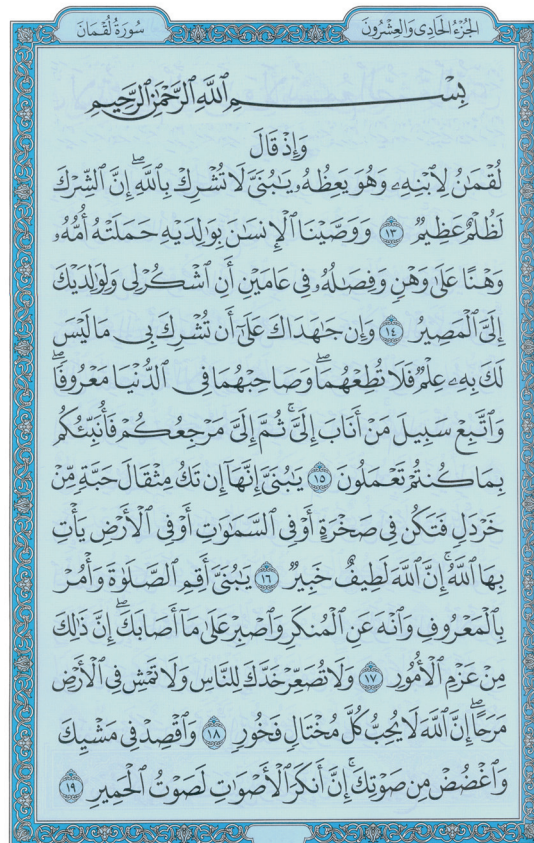 الجُزْءُ الحَادِى وَالعِشْرُونَ
سُورَةُ لُقْمَانَ
بِسْمِ ٱللَّهِ ٱلرَّحْمَٰنِ ٱلرَّحِيمِ
وَإِذْ قَالَ
لُقْمَٰنُ لِٱبْنِهِۦ وَهُوَ يَعِظُهُۥ يَٰبُنَىَّ لَا تُشْرِكْ بِٱللَّهِۖ إِنَّ ٱلشِّرْكَ
لَظُلْمٌ عَظِيمٌ ١٣ وَوَصَّيْنَا ٱلْإِنسَٰنَ بِوَٰلِدَيْهِ حَمَلَتْهُ أُمُّهُۥ
وَهْنًا عَلَىٰ وَهْنٍ وَفِصَٰلُهُۥ فِى عَامَيْنِ أَنِ ٱشْكُرْ لِى وَلِوَٰلِدَيْكَ
إِلَىَّ ٱلْمَصِيرُ ١٤ وَإِن جَٰهَدَاكَ عَلَىٰٓ أَن تُشْرِكَ بِى مَا لَيْسَ
لَكَ بِهِۦ عِلْمٌ فَلَا تُطِعْهُمَاۖ وَصَاحِبْهُمَا فِى ٱلدُّنْيَا مَعْرُوفًاۖ
وَٱتَّبِعْ سَبِيلَ مَنْ أَنَابَ إِلَىَّۚ ثُمَّ إِلَىَّ مَرْجِعُكُمْ فَأُنَبِّئُكُم
بِمَا كُنتُمْ تَعْمَلُونَ ١٥ يَٰبُنَىَّ إِنَّهَآ إِن تَكُ مِثْقَالَ حَبَّةٍ مِّنْ
خَرْدَلٍ فَتَكُن فِى صَخْرَةٍ أَوْ فِى ٱلسَّمَٰوَٰتِ أَوْ فِى ٱلْأَرْضِ يَأْتِ
بِهَا ٱللَّهُۚ إِنَّ ٱللَّهَ لَطِيفٌ خَبِيرٌ ١٦ يَٰبُنَىَّ أَقِمِ ٱلصَّلَوٰةَ وَأْمُرْ
بِٱلْمَعْرُوفِ وَٱنْهَ عَنِ ٱلْمُنكَرِ وَٱصْبِرْ عَلَىٰ مَآ أَصَابَكَۖ إِنَّ ذَٰلِكَ
مِنْ عَزْمِ ٱلْأُمُورِ ١٧ وَلَا تُصَعِّرْ خَدَّكَ لِلنَّاسِ وَلَا تَمْشِ فِى ٱلْأَرْضِ
مَرَحًاۖ إِنَّ ٱللَّهَ لَا يُحِبُّ كُلَّ مُخْتَالٍ فَخُورٍ ١٨ وَٱقْصِدْ فِى مَشْيِكَ
وَٱغْضُضْ مِن صَوْتِكَۚ إِنَّ أَنكَرَ ٱلْأَصْوَٰتِ لَصَوْتُ ٱلْحَمِيرِ ١٩